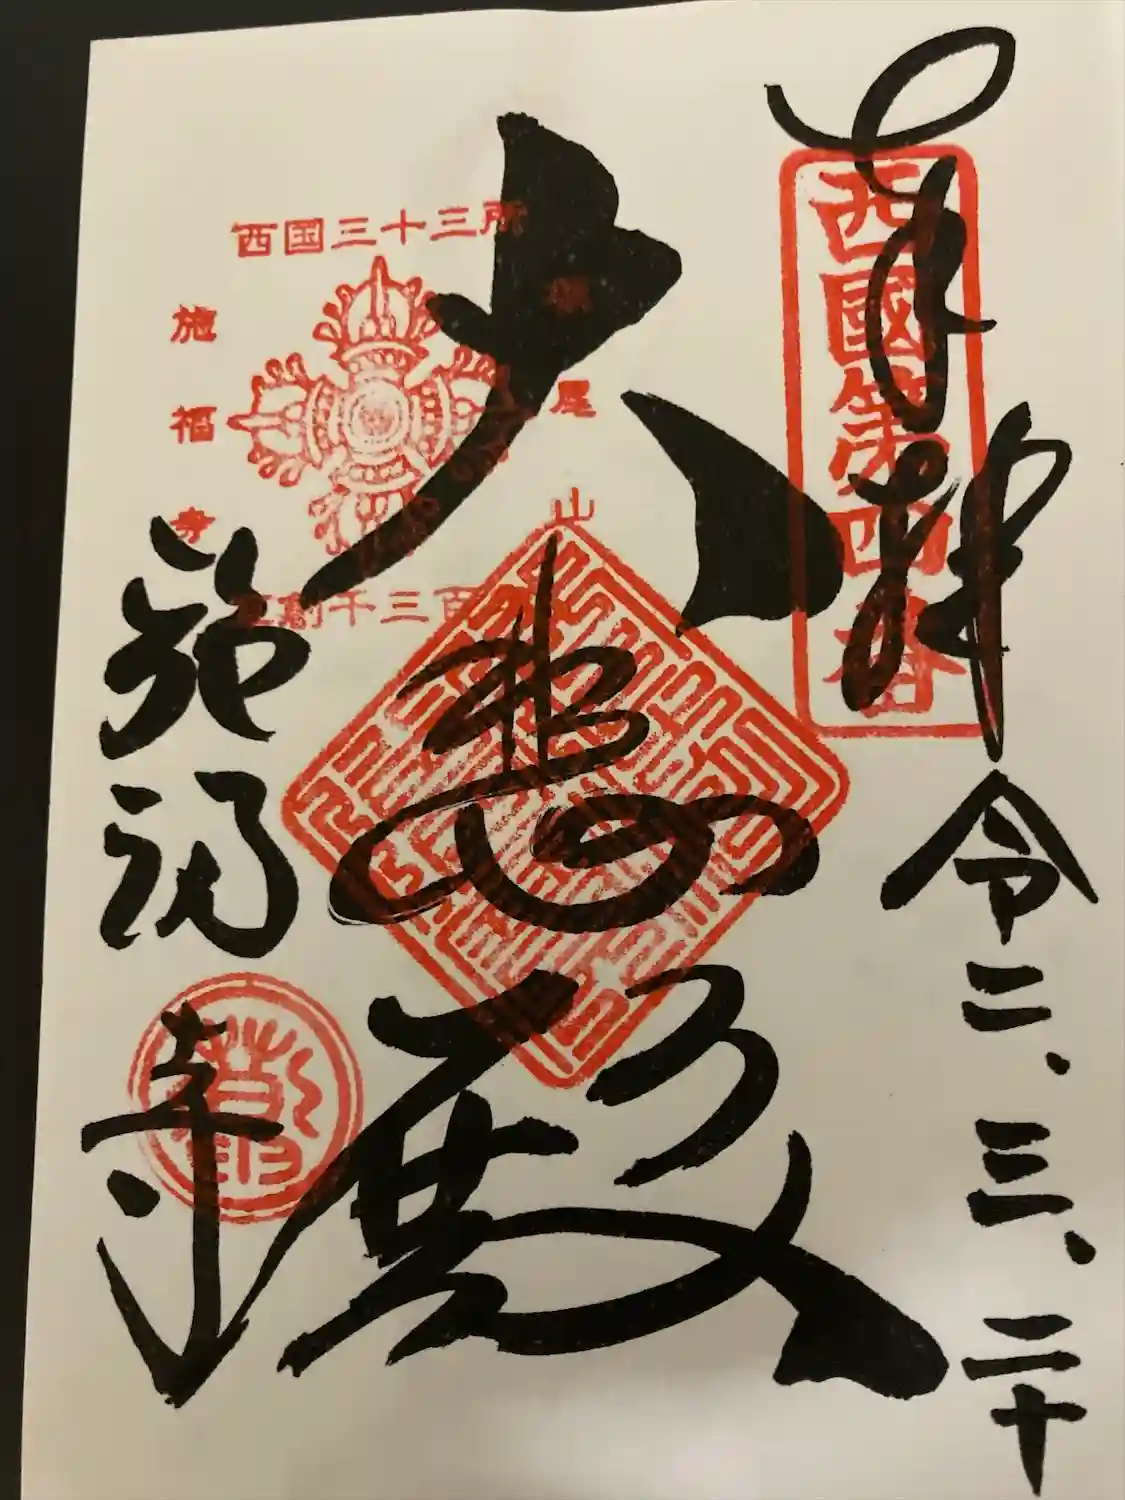 奉拝
西國第四番
令二.三.二十
大悲殿
西国三十三所
槇尾山
施福寺
草創千三百
施福寺